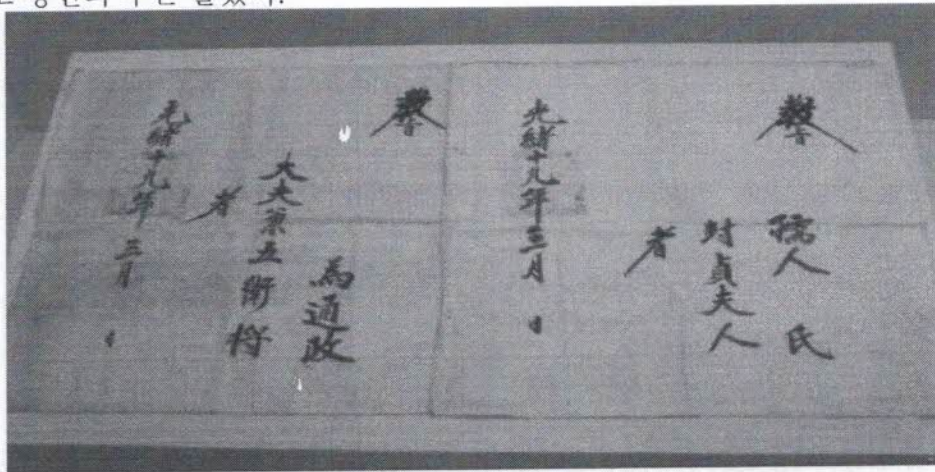 敎旨
孺人 氏
封貞夫人
者
光緖十九年三月 日
敎旨
為通政
大夫兼五衛將
者
光緖十九年三月 日